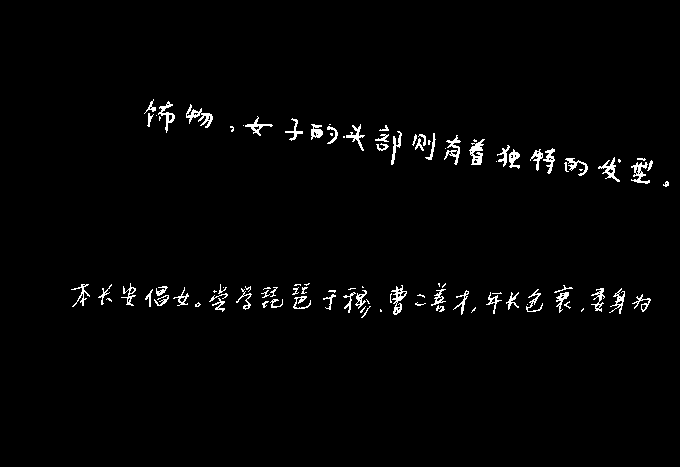 饰物,女子的头部则有着独特的发型。
本长安倡女。尝学琵琶于穆、曹二善才,年长色衰,委身为